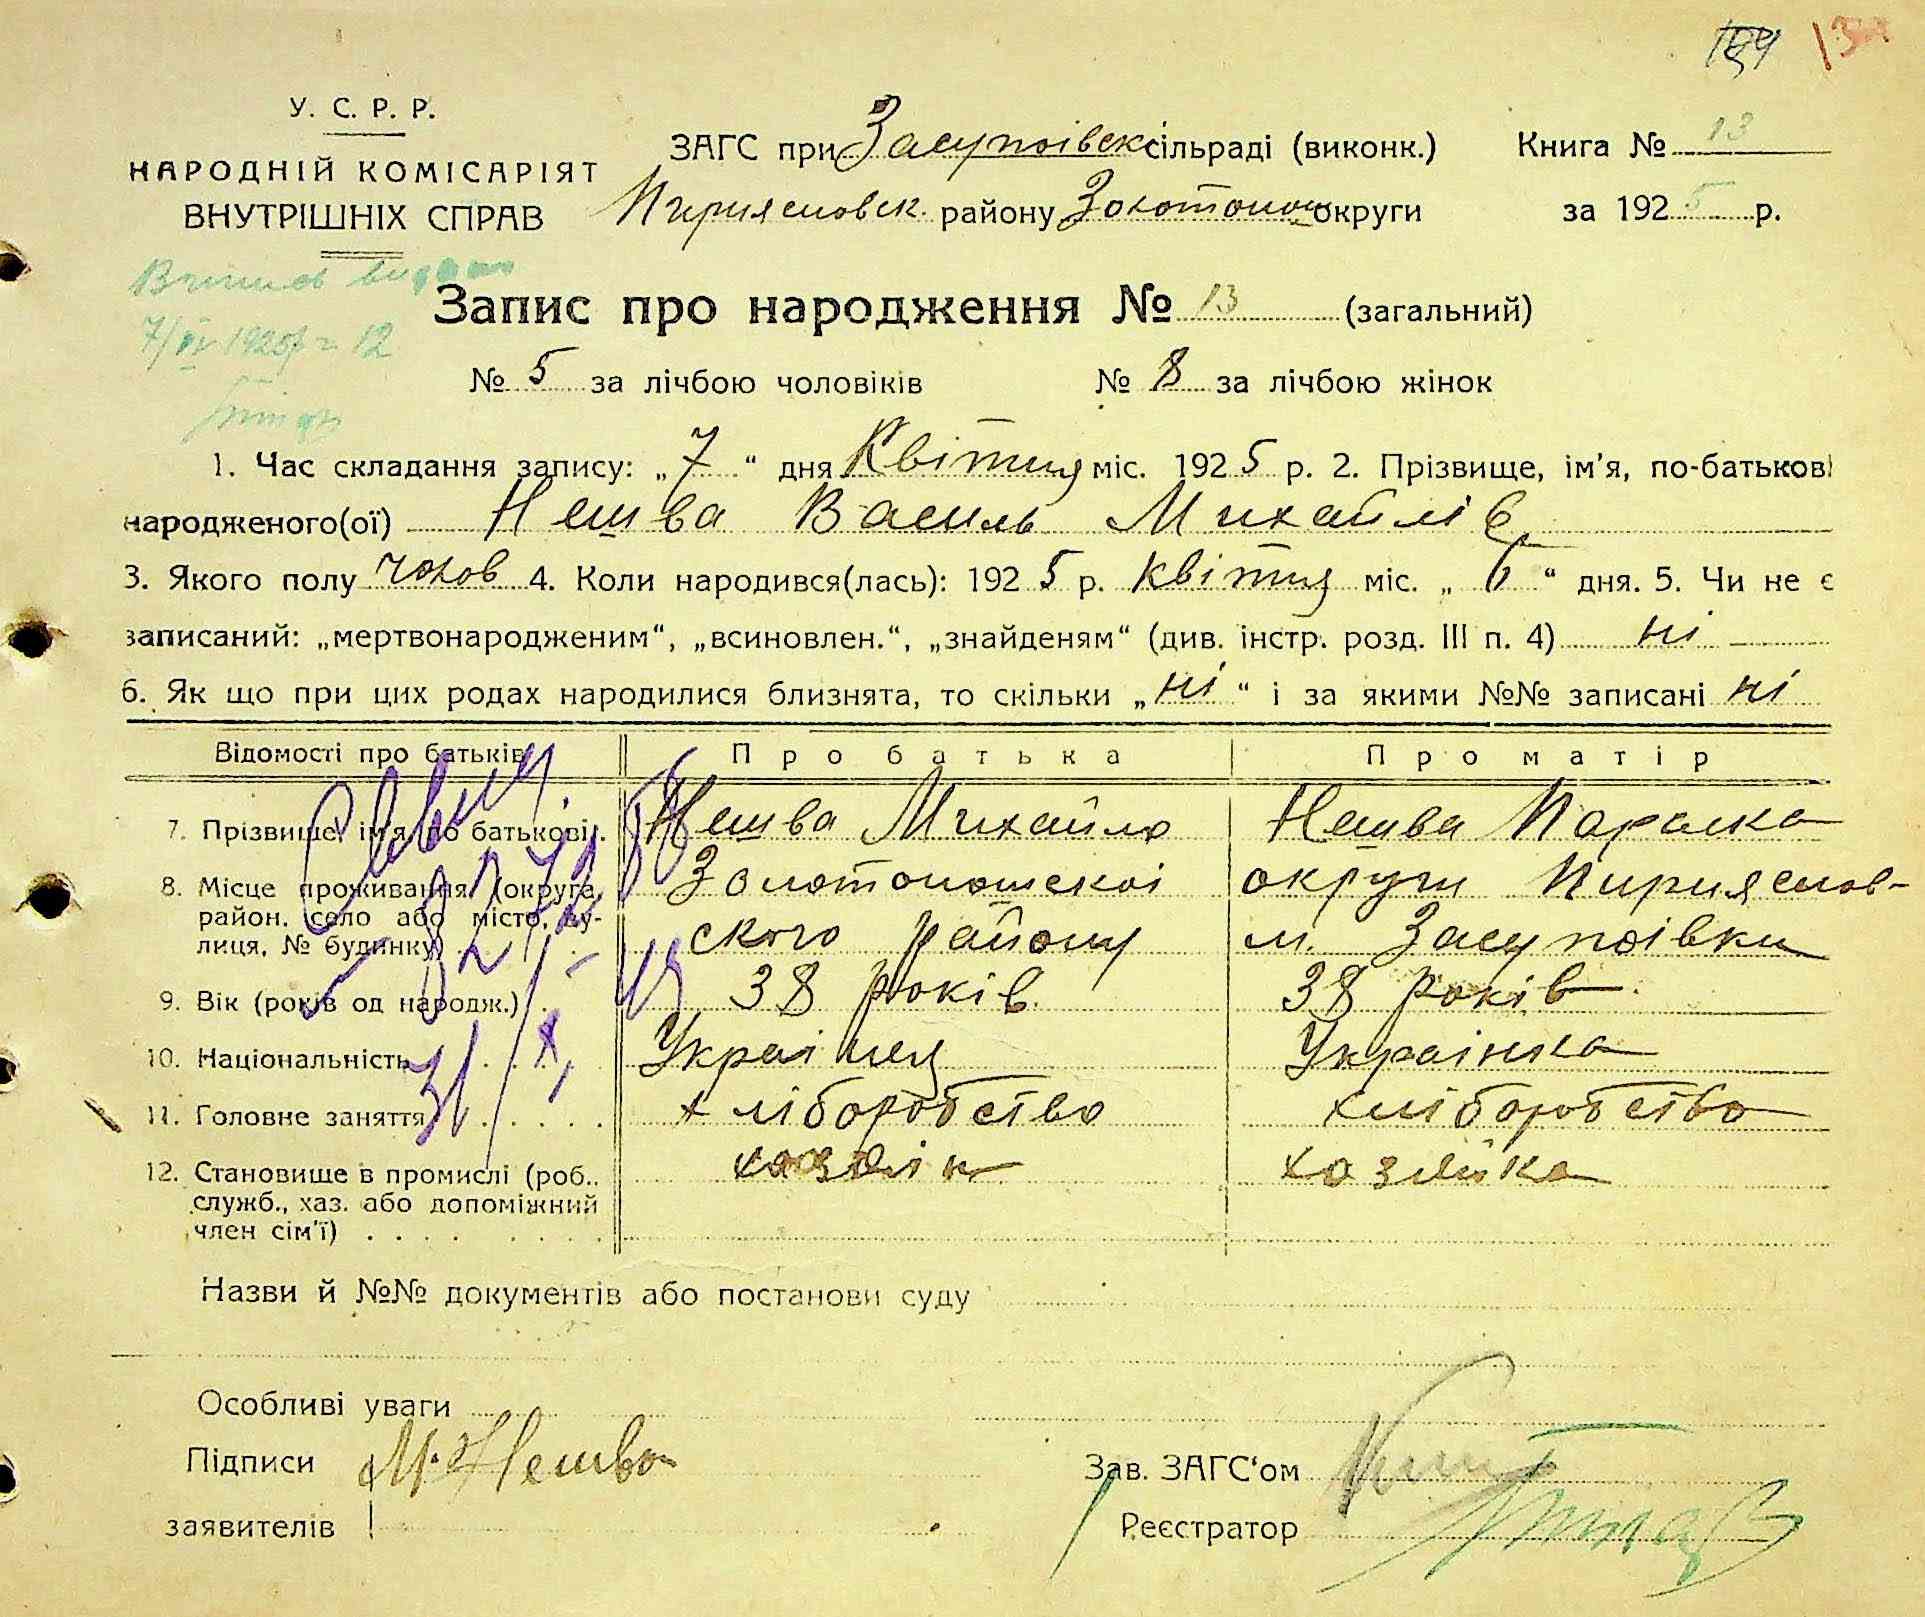 У. С. Р. Р.
НАРОДНІЙ КОМІСАРІЯТ
ВНУТРІШНІХ СПРАВ
ЗАГС при Засупоівск сільраді (виконк.) Книга № 13
Пирияславск. району Золотонош округи за 1925 р.
7/IV 1925 12
Запис про народження № 13 (загальний)
№ 5 за лічбою чоловіків № 8 за лічбою жінок
1. Час складання запису: „7“ дня Квітня міс. 1925 р. 2. Прізвище, ім'я, по-батькові
народженого(ої) Нешва Василь Михайлів
3. Якого полу чолов 4. Коли народився(лась): 1925 р. квітня міс. „6“ дня. 5. Чи не є
записаний: „мертвонародженим“, „всиновлен.“, „знайденям“ (див. інстр. розд. III п. 4) ні
6. Як що при цих родах народилися близнята, то скільки „ні“ і за якими №№ записані ні
Відомості про батьків Про батька Про матір
7. Прізвище, ім'я, по батькові. Нешва Михайло Нешва Параска
8. Місце проживання (округа, Золотоношскоі округи Пирияслов-
район, село або місто, ву- ского району м. Засупоівки
лиця, № будинку)
9. Вік (років од народж.) 38 років 38 років
10. Національність Украінец Украінка
11. Головне заняття хліборобство хліборобство
12. Становище в промислі (роб., хазяін хозяйка
служб., хаз. або допоміжний
член сім'ї)
Назви й №№ документів або постанови суду
Особливі уваги
Підписи М. Нешва
заявителів
Зав. ЗАГС'ом
Реєстратор